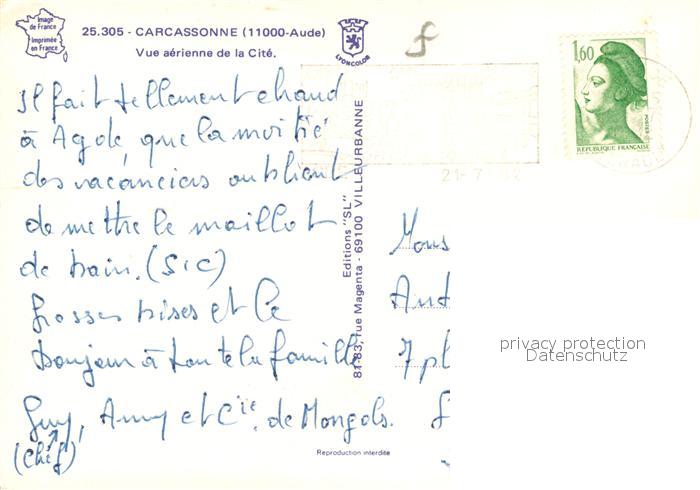 Image
de France
Imprimée
en France
25.305 - CARCASSONNE (11000-Aude)
Vue aérienne de la Cité.
LYONCOLOR
1,60
POSTES
REPUBLIQUE FRANÇAISE
21-7
Il fait tellement chaud
à Agde, que la moitié
des vacanciers oublient
de mettre le maillot
de bain. (sic)
Grosses bises et le
bonjour à toute la famille
Guy, Anny et Cie. de Mongols.
(Chef)
Editions "SL"
81-83, rue Magenta - 69100 VILLEURBANNE
Mous
And
7 pl
privacy protection
Datenschutz
Reproduction interdite